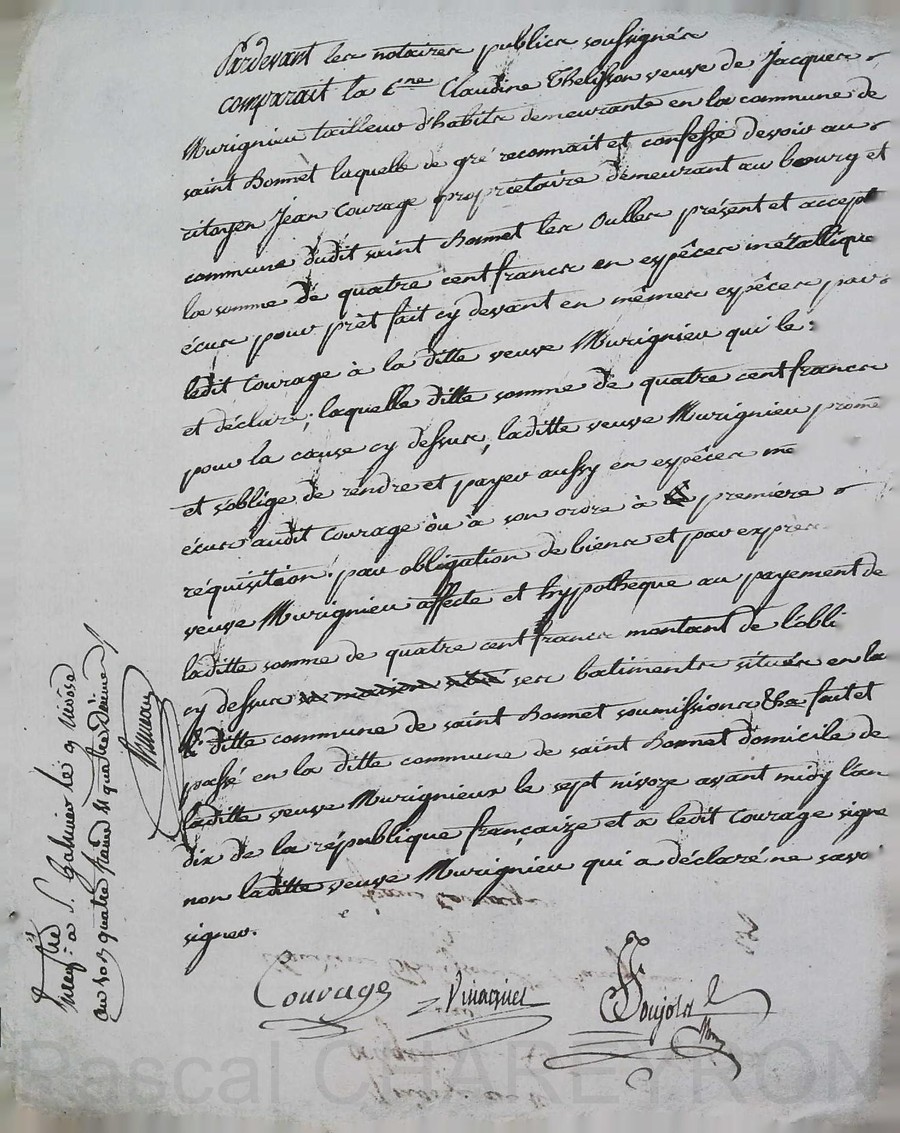 Pardevant les notaires publics soussignés
comparait la Cne Claudine Thelisson veuve de Jacques
Murignieu tailleur d'habits demeurante en la commune de
saint Bonnet laquelle de gré reconnait et confesse devoir au
citoyen Jean Courage propriétaire demeurant au bourg et
commune dudit saint Bonnet les Oulles présent et accept
la somme de quatre cent francs en espêces métallique
écus pour prèt fait cy devant en mêmes espêces par
ledit Courage à la ditte veuve Murignieu qui le :
et déclare ; laquelle ditte somme de quatre cent francs
pour la cause cy dessus, laditte veuve Murignieu prome
et s'oblige de rendre et payer aussy en espêces mé
écus audit Courage òu à son ordre à première
réquisition. par obligation de biens et par exprès
veuve Murignieu affecte et hypothèque au payement de
laditte somme de quatre cent francs montant de l'obli
cy dessus la maison ses batiments situés en la
ditte commune de saint Bonnet soumissions &a fait et
passé en la ditte commune de saint Bonnet domicile de
laditte veuve Murignieux le sept nivoze avant midy l'an
dix de la république françaize et a ledit Courage signé
non laditte veuve Murignieu qui a déclaré ne savoi
signer.
Courage Vinagnet Soujols
Enregtré à S. Galmier le 9 nivôse
an 10 quatre francs
Pascal CHAREYRON